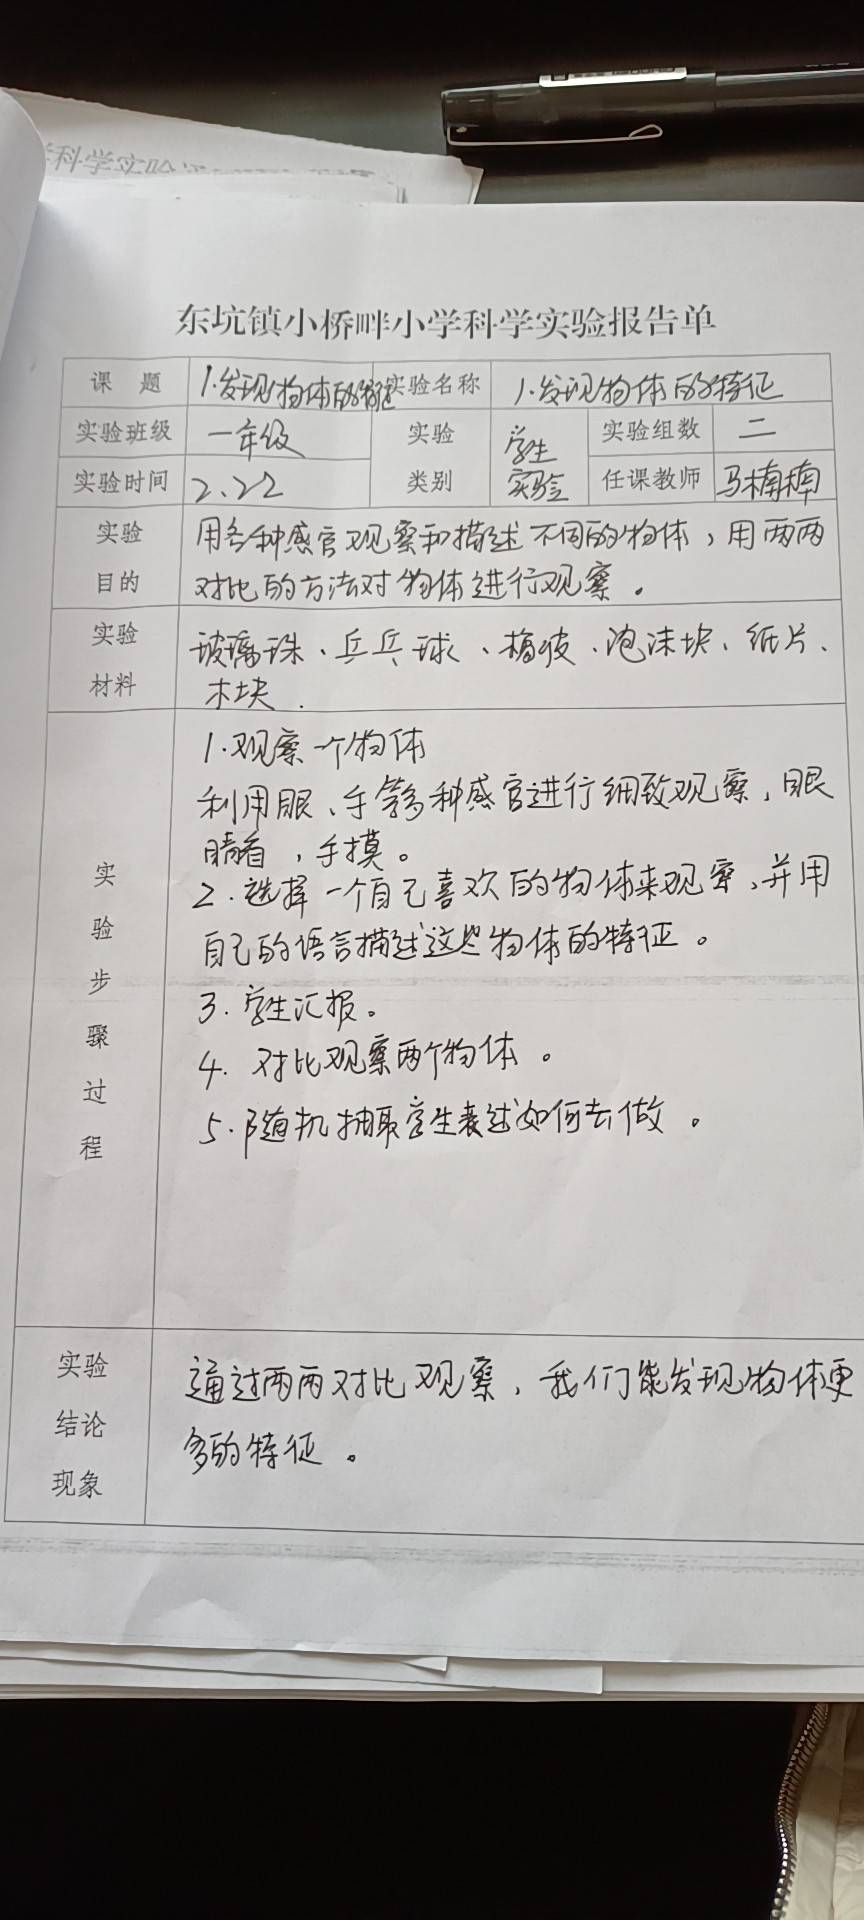 科学实验
东坑镇小桥畔小学科学实验报告单
课 题 1.发现物体的特征 实验名称 1.发现物体的特征
实验班级 一年级 实验类别 学生实验 实验组数 二
实验时间 2.22 任课教师 马楠楠
实验目的 用各种感官观察和描述不同的物体，用两两
对比的方法对物体进行观察。
实验材料 玻璃珠、乒乓球、橡皮、泡沫块、纸片、
木块.
实验步骤过程
1.观察一个物体
利用眼、手等多种感官进行细致观察，眼
睛看，手摸。
2.选择一个自己喜欢的物体来观察，并用
自己的语言描述这些物体的特征。
3.学生汇报。
4.对比观察两个物体。
5.随机抽取学生表述如何去做。
实验结论现象 通过两两对比观察，我们能发现物体更
多的特征。